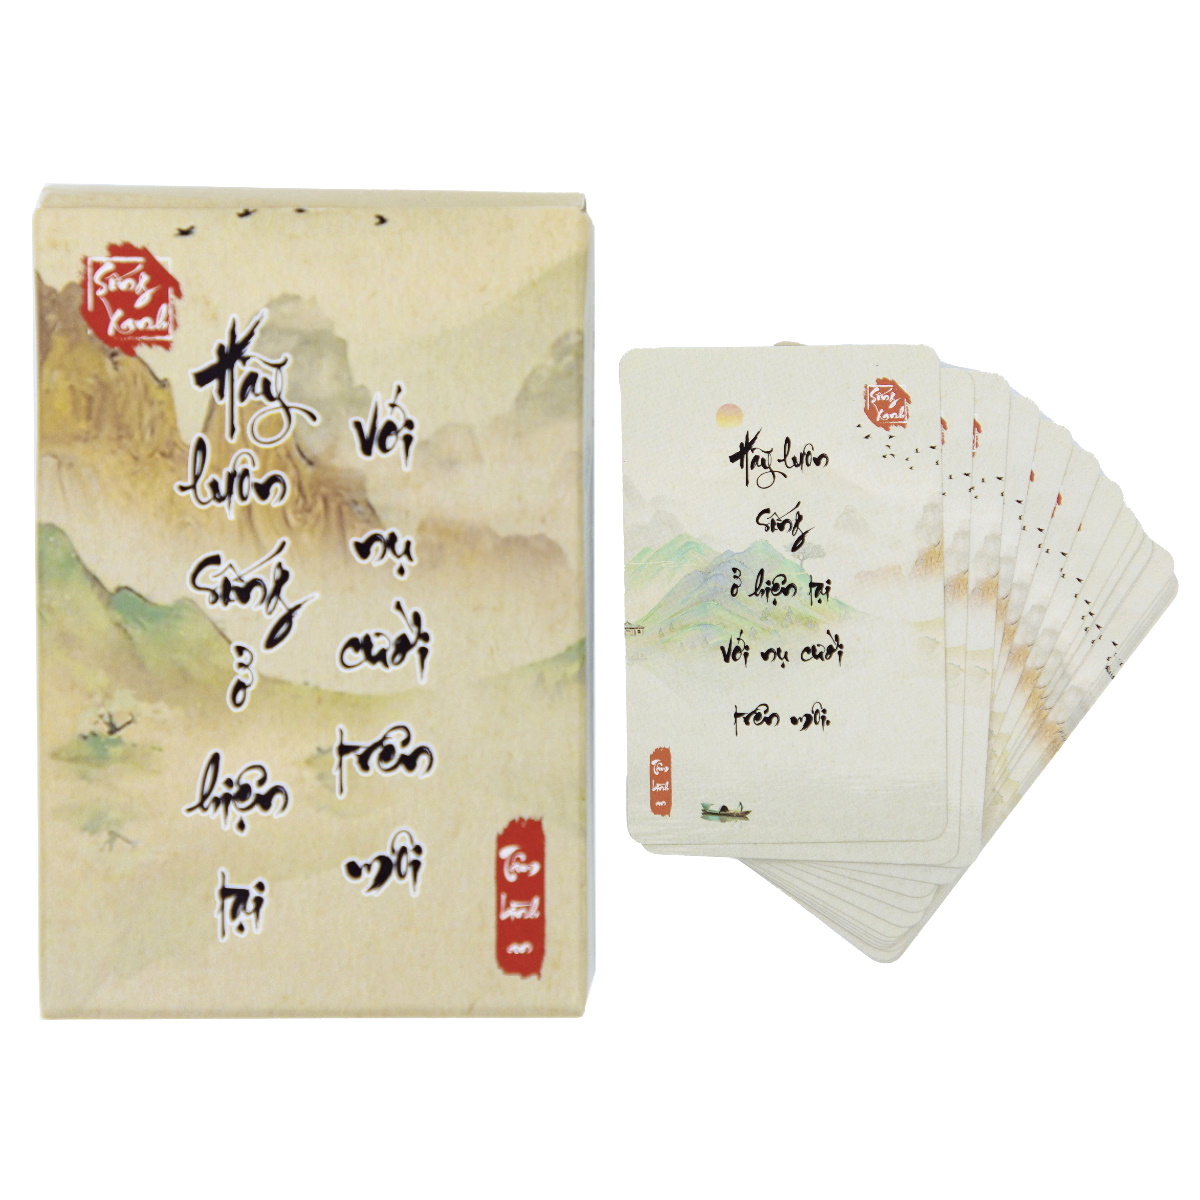 Sống
Xanh
Hãy
luôn
sống
ở
hiện
tại
với
nụ
cười
trên
môi
Tâm
bình
an
Sống
Xanh
Hãy luôn
sống
ở hiện tại
với nụ cười
trên môi.
Tâm
bình
an